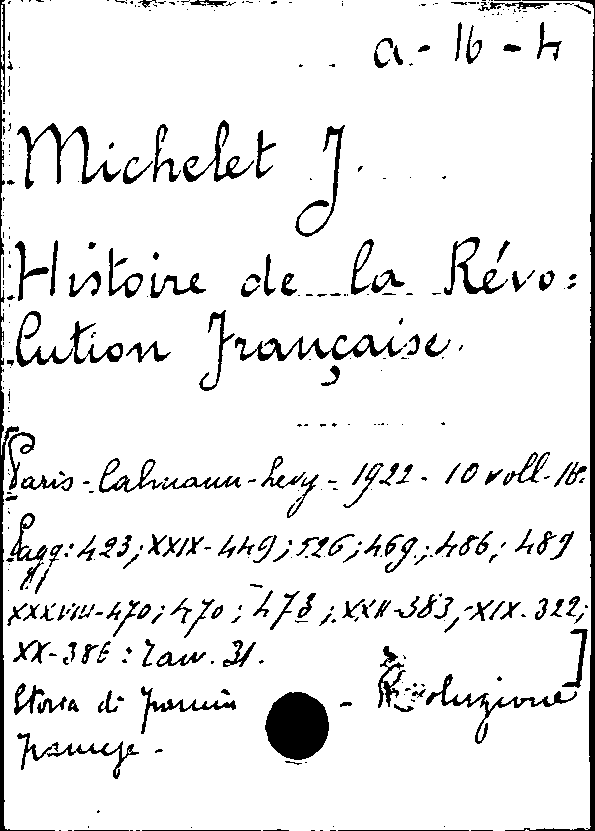 a - 16 - 4
Michelet J.
Histoire de la Révo=
lution Française.
[Paris - Calmann-Levy - 1922 - 10 voll. 16º.
Pagg: 423; XXIX-449; 526; 469; 486; 489
XXXVIII-470; 470; 473; XXII-383; XIX-322;
XX-386: Tav. 31.]
Storia di Francia - Rivoluzione
francese -